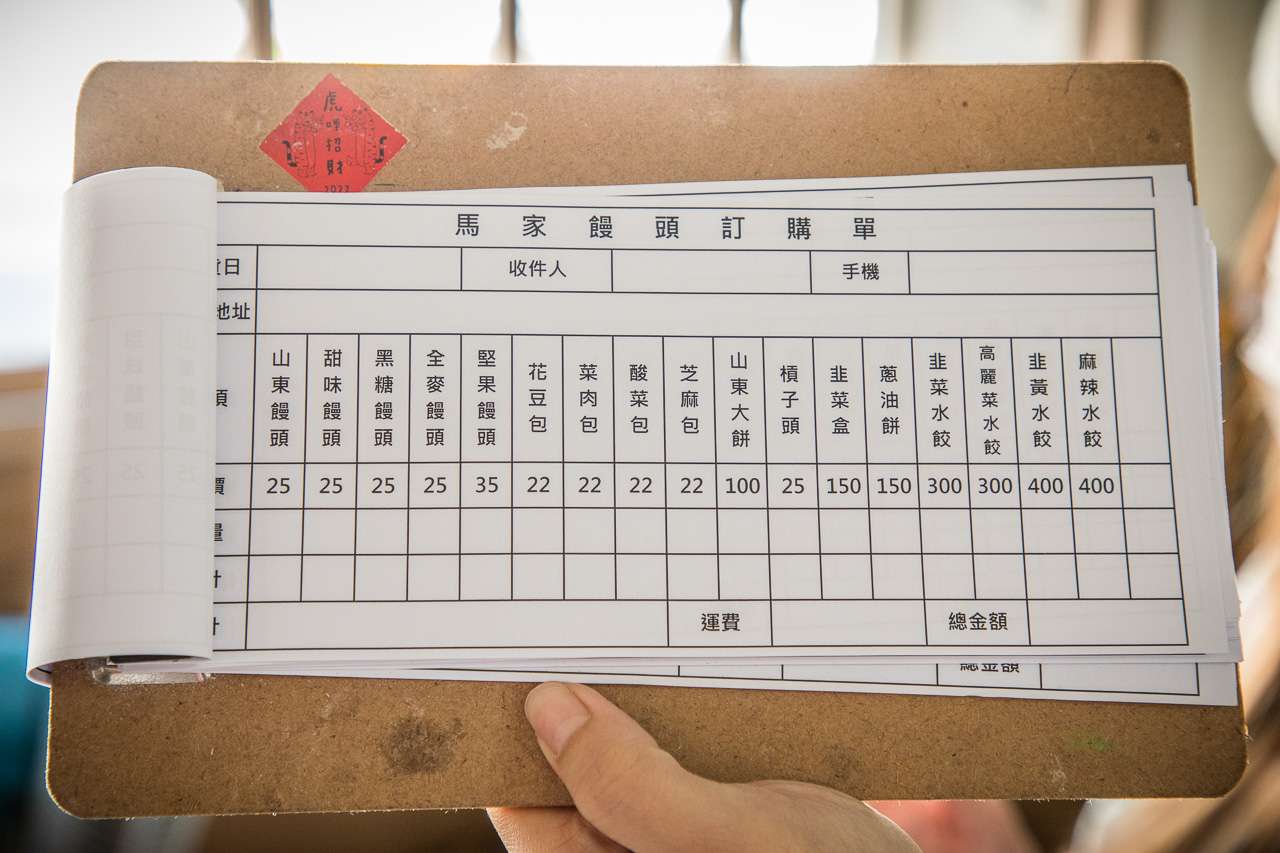 虎
呷
招
財
2022
馬家饅頭訂購單
貨日 收件人 手機
地址
項 山東饅頭 甜味饅頭 黑糖饅頭 全麥饅頭 堅果饅頭 花豆包 菜肉包 酸菜包 芝麻包 山東大餅 槓子頭 韭菜盒 蔥油餅 韭菜水餃 高麗菜水餃 韭黃水餃 麻辣水餃
價 25 25 25 25 35 22 22 22 22 100 25 150 150 300 300 400 400
量
計
計 運費 總金額
總金額